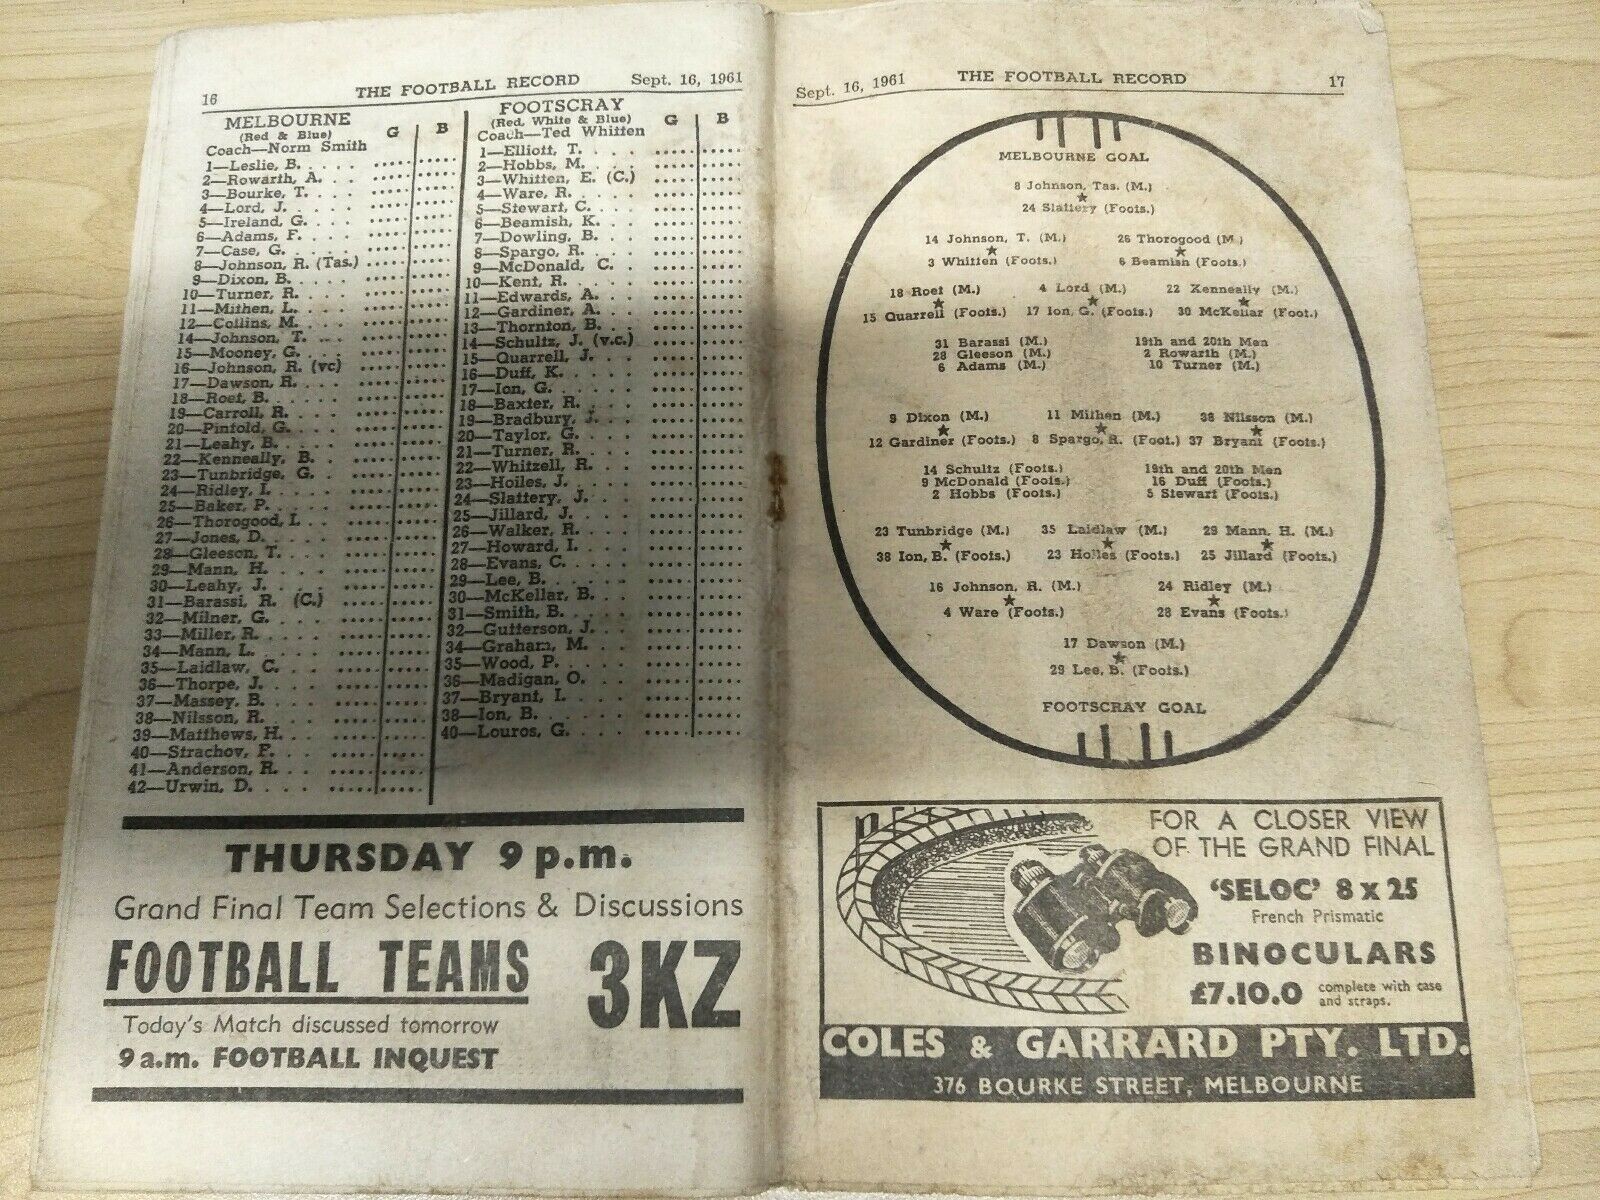 16 THE FOOTBALL RECORD Sept. 16, 1961
MELBOURNE
(Red & Blue) G B
Coach—Norm Smith
1—Leslie, B.
2—Rowarth, A.
3—Bourke, T.
4—Lord, J.
5—Ireland, G.
6—Adams, F.
7—Case, G.
8—Johnson, R. (Tas.)
9—Dixon, B.
10—Turner, R.
11—Mithen, L.
12—Collins, M.
14—Johnson, T.
15—Mooney, G.
16—Johnson, R. (vc)
17—Dawson, R.
18—Roet, B.
19—Carroll, R.
20—Pintold, G.
21—Leahy, B.
22—Kenneally, B.
23—Tunbridge, G.
24—Ridley, I.
25—Baker, P.
26—Thorogood, I.
27—Jones, D.
28—Gleeson, T.
29—Mann, H.
30—Leahy, J.
31—Barassi, R. (C.)
32—Milner, G.
33—Miller, R.
34—Mann, L.
35—Laidlaw, C.
36—Thorpe, J.
37—Massey, B.
38—Nilsson, R.
39—Matthews, H.
40—Strachov, F.
41—Anderson, R.
42—Urwin, D.
FOOTSCRAY
(Red, White & Blue) G B
Coach—Ted Whitten
1—Elliott, T.
2—Hobbs, M.
3—Whitten, E. (C.)
4—Ware, R.
5—Stewart, C.
6—Beamish, K.
7—Dowling, B.
8—Spargo, R.
9—McDonald, C.
10—Kent, R.
11—Edwards, A.
12—Gardiner, A.
13—Thornton, B.
14—Schultz, J. (v.c.)
15—Quarrell, J.
16—Duff, K.
17—Ion, G.
18—Baxter, R.
19—Bradbury, J.
20—Taylor, G.
21—Turner, R.
22—Whitzell, R.
23—Hoiles, J.
24—Slattery, J.
25—Jillard, J.
26—Walker, R.
27—Howard, I.
28—Evans, C.
29—Lee, B.
30—McKellar, B.
31—Smith, B.
32—Gutterson, J.
34—Graham, M.
35—Wood, P.
36—Madigan, O.
37—Bryant, I.
38—Ion, B.
40—Louros, G.
THURSDAY 9 p.m.
Grand Final Team Selections & Discussions
FOOTBALL TEAMS 3KZ
Today's Match discussed tomorrow
9 a.m. FOOTBALL INQUEST
Sept. 16, 1961 THE FOOTBALL RECORD 17
MELBOURNE GOAL
8 Johnson, Tas. (M.)
24 Slattery (Foots.)
14 Johnson, T. (M.) 26 Thorogood (M.)
3 Whitten (Foots.) 6 Beamish (Foots.)
18 Roet (M.) 4 Lord (M.) 22 Kenneally (M.)
15 Quarrell (Foots.) 17 Ion, G. (Foots.) 30 McKellar (Foot.)
31 Barassi (M.) 19th and 20th Men
28 Gleeson (M.) 2 Rowarth (M.)
6 Adams (M.) 10 Turner (M.)
9 Dixon (M.) 11 Mithen (M.) 38 Nilsson (M.)
12 Gardiner (Foots.) 8 Spargo, R. (Foot.) 37 Bryant (Foots.)
14 Schultz (Foots.) 19th and 20th Men
9 McDonald (Foots.) 16 Duff (Foots.)
2 Hobbs (Foots.) 5 Stewart (Foots.)
23 Tunbridge (M.) 35 Laidlaw (M.) 29 Mann, H. (M.)
38 Ion, B. (Foots.) 23 Hoiles (Foots.) 25 Jillard (Foots.)
16 Johnson, R. (M.) 24 Ridley (M.)
4 Ware (Foots.) 28 Evans (Foots.)
17 Dawson (M.)
29 Lee, B. (Foots.)
FOOTSCRAY GOAL
FOR A CLOSER VIEW
OF THE GRAND FINAL
'SELOC' 8 x 25
French Prismatic
BINOCULARS
£7.10.0 complete with case
and straps.
COLES & GARRARD PTY. LTD.
376 BOURKE STREET, MELBOURNE